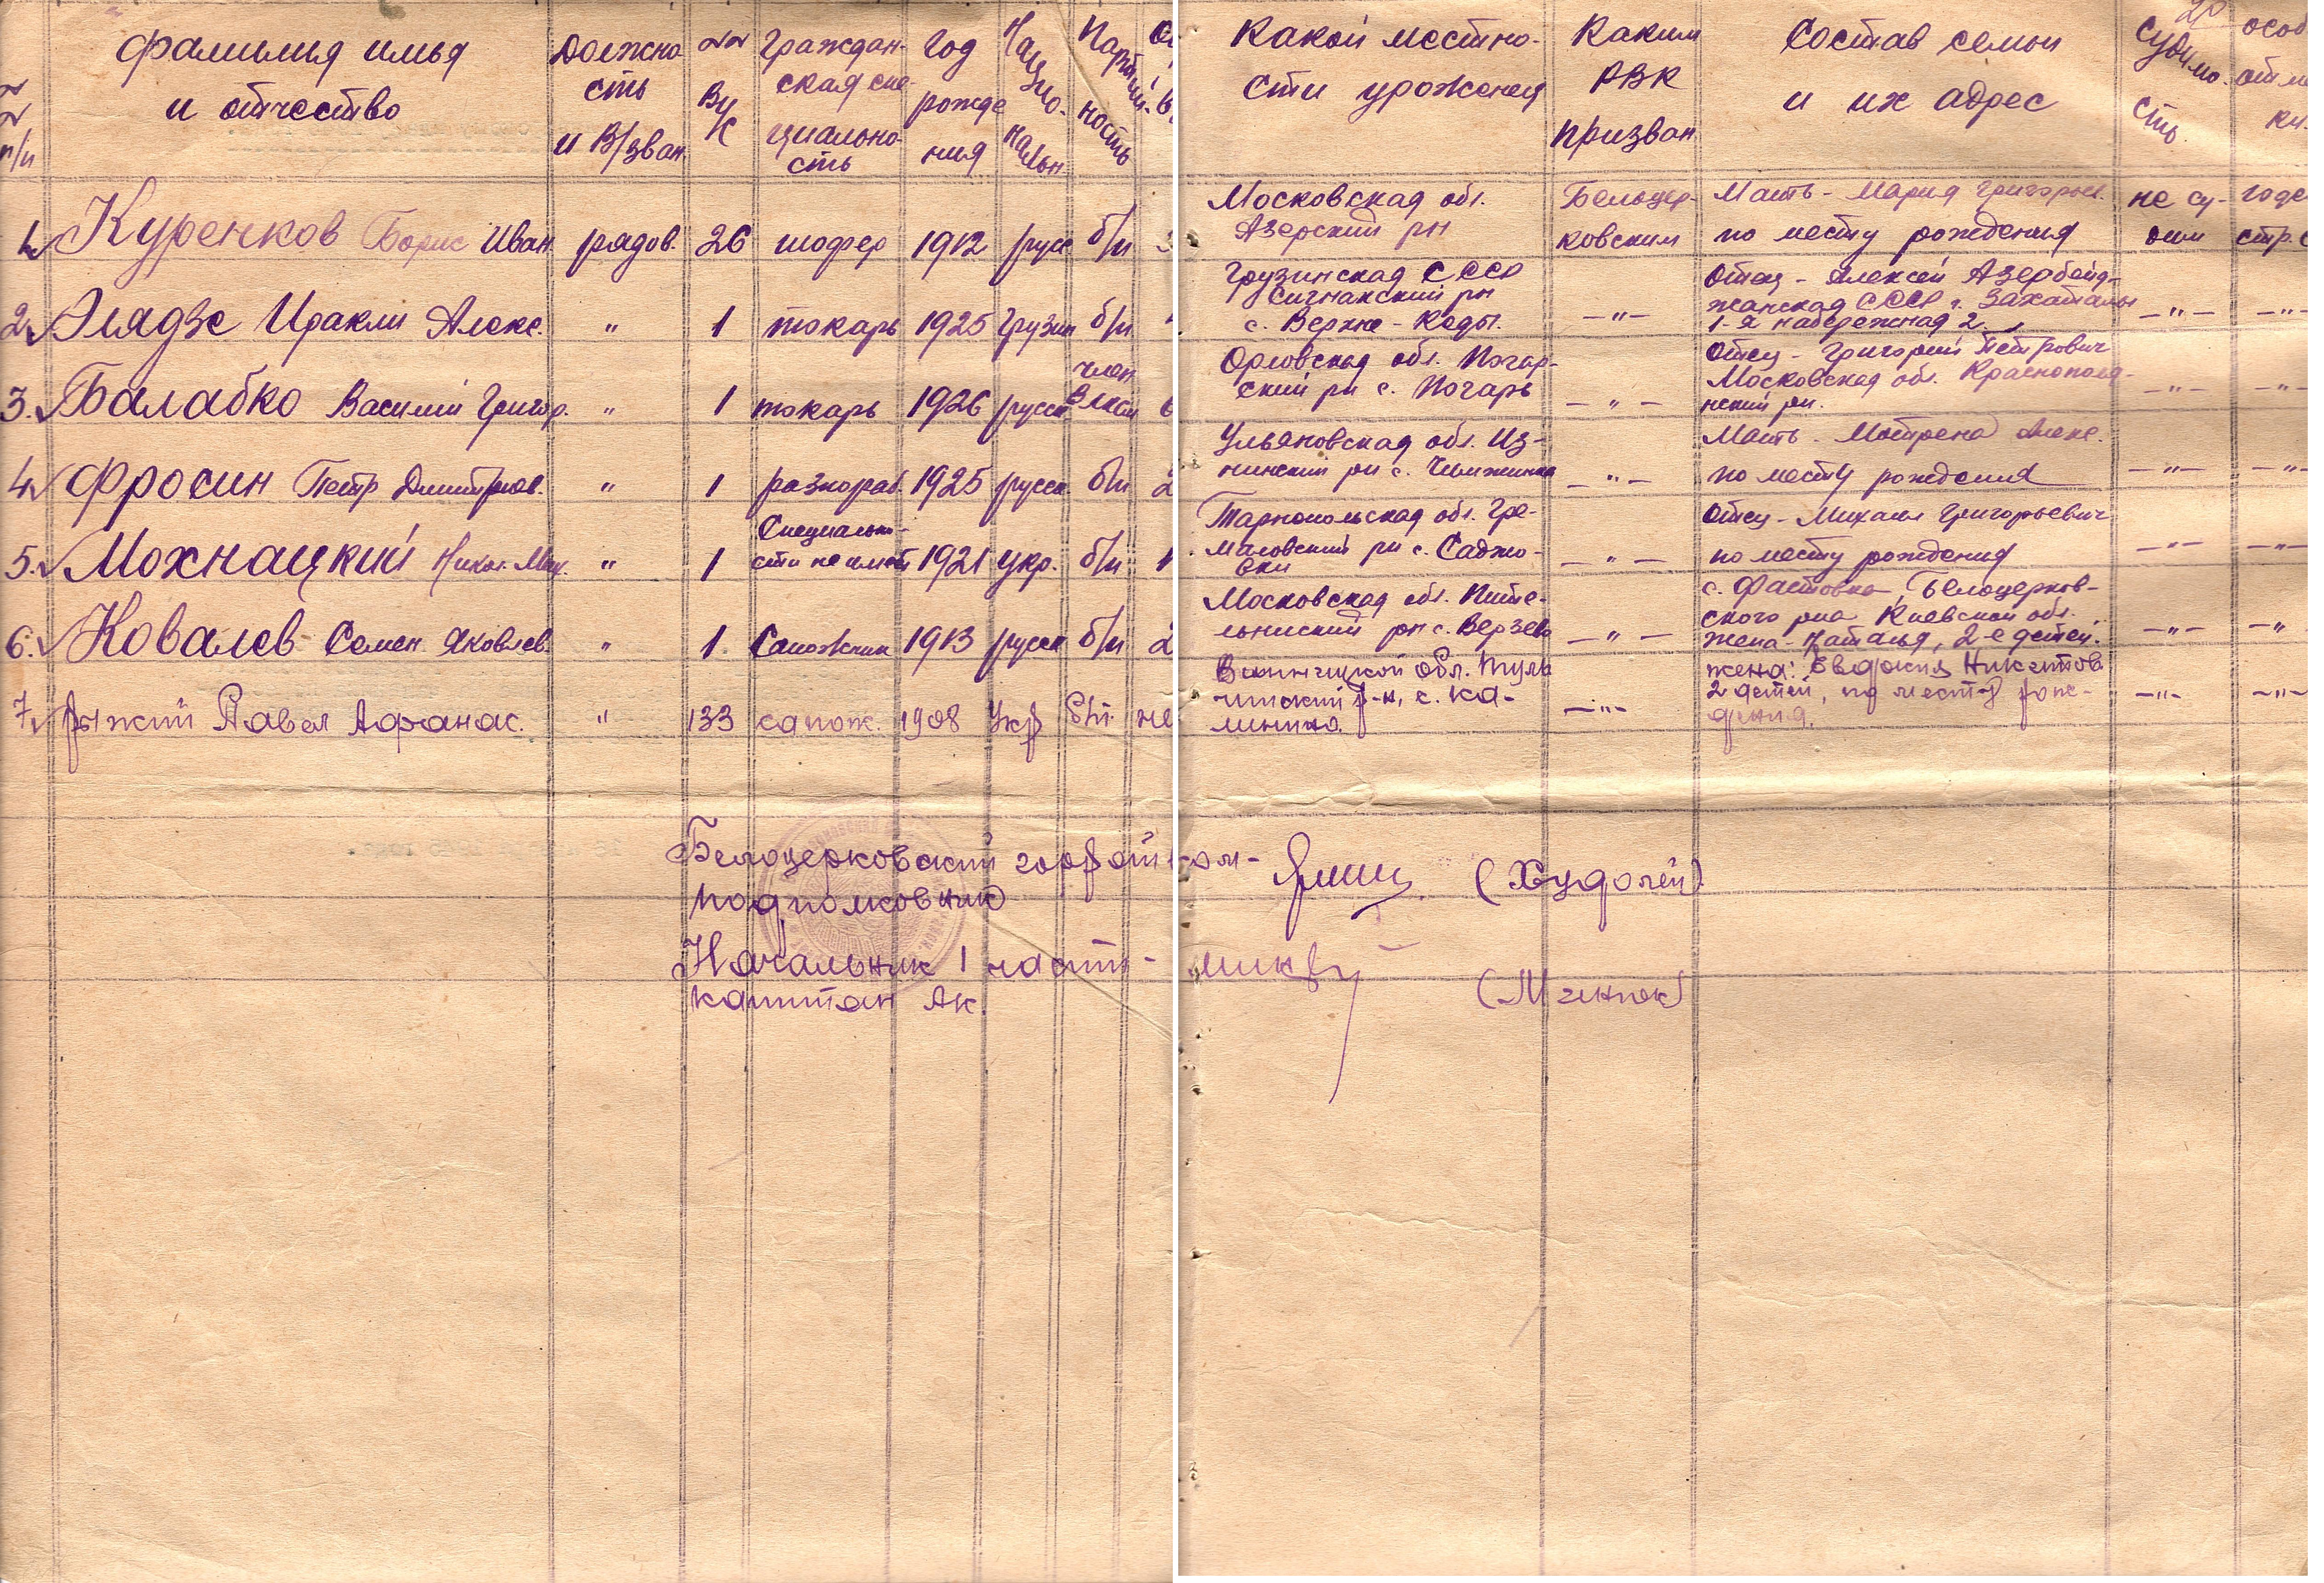 №№ п/п
фамилия имья
и отчество
Должно-
сть
и В/зван.
№№
ВУ
К
Граждан-
ская спе-
циально-
сть
Год
рожде
ния
Нацио-
нальн.
Партий-
ность
Какой местно-
сти урожения
Каким
РВК
призван
Состав семьи
и их адрес
20
Судимо-
сть.
особ
отме
ки.
1. Куренков Борис Иван. рядов. 26 шофер 1912 русс б/п
Московская обл.
Азерский рн
Белоцер-
ковским
Мать - Мария Григорьев.
по месту рождения
не су-
дим
годе
стр.
2. Элядзе Иракли Алекс. " 1 токарь 1925 грузин б/п
Грузинская СССР
Сигнакский рн
с. Верхне-Кеды.
—"—
Отец - Алексей Азербейд-
жанская СССР г. Закаталы
1-я набережная 2.
—"— —"—
3. Балабко Василий Григор. " 1 токарь 1926 русск член
Влксм 6
Орловская обл. Погар-
ский рн с. Погарь
—"—
Отец - Григорий Петрович
Московская обл. Краснополя-
нский рн.
—"— —"—
4. Фросин Петр Дмитриев. " 1 разнораб. 1925 русск. б/п 2
Ульяновская обл. Из-
нинский рн с.
—"—
Мать - Матрена Алекс.
по месту рождения
—"— —"—
5. Мохнацкий Никол. Мих. " 1 Специально-
сти не имеет 1921 укр. б/п 1
Тарнопольская обл. Гре-
маловский рн с. Саджо-
вки
—"—
Отец - Михаил Григорьевич
по месту рождения
—"— —"—
6. Ковалев Семен Яковлев. " 1. Сапожник 1913 русск б/п 2
Московская обл. Пите-
льниский рн с.
—"—
с. Фастовка, Белоцерков-
ского рна Киевской обл.
жена - Наталья, 2-е детей.
—"— —"
7. Рыжий Павел Афанас. " 133 сапож. 1908 Укр б/п не
Винницкой обл. Туль
чинский р-н, с. Ка-
линино.
—"—
жена: Евдокия Никитов.
2 детей, по месту рож-
дения.
—"— —"—
Белоцерковский горвойком-
подполковник
(Худолей)
Начальник 1 части-
капитан Ак.